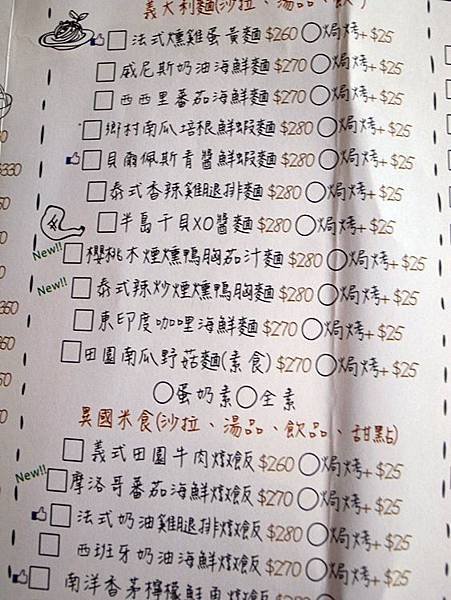 義大利麵(沙拉、湯品、飲
法式燻雞蛋黃麵 $260 ○焗烤+$25
威尼斯奶油海鮮麵 $270 ○焗烤+$25
西西里番茄海鮮麵 $270 ○焗烤+$25
鄉村南瓜培根鮮蝦麵 $280 ○焗烤+$25
貝爾佩斯青醬鮮蝦麵 $280 ○焗烤+$25
泰式香辣雞腿排麵 $280 ○焗烤+$25
半島干貝XO醬麵 $280 ○焗烤+$25
New!! 櫻桃木煙燻鴨胸茄汁麵 $280 ○焗烤+$25
New!! 泰式辣炒煙燻鴨胸麵 $280 ○焗烤+$25
東印度咖哩海鮮麵 $270 ○焗烤+$25
田園南瓜野菇麵(素食) $270 ○焗烤+$25
○蛋奶素○全素
異國米食(沙拉、湯品、飲品、甜點)
義式田園牛肉燉飯 $260 ○焗烤+$25
New!! 摩洛哥番茄海鮮燉飯 $270 ○焗烤+$25
法式奶油雞腿排燉飯 $280 ○焗烤+$25
西班牙奶油海鮮燉飯 $270 ○焗烤+$25
南洋香茅檸檬鮮魚燉飯 $280 ○焗烤+$25